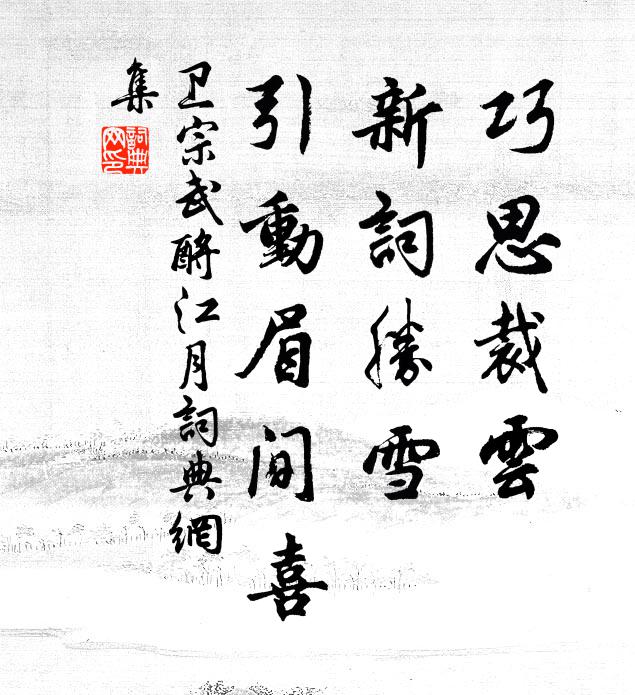 巧思裁雲
新詞勝雪
引動眉間喜
卫宗武酹江月詞典網
集
詞典
网印